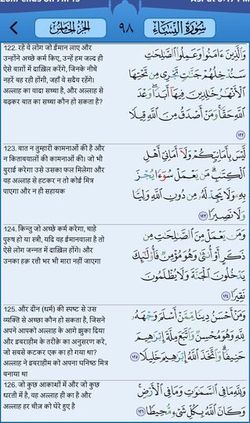 الجزء الخامس
٩٨
سورة النساء
122. रहे वे लोग जो ईमान लाए और
उन्होंने अच्छे कर्म किए, उन्हें हम जल्द ही
ऐसे बाग़ों में दाख़िल करेंगे, जिनके नीचे
नहरें बह रही होंगी, जहाँ वे सदैव रहेंगे।
अल्लाह का वादा सच्चा है, और अल्लाह से
बढ़कर बात का सच्चा कौन हो सकता है?
وَٱلَّذِينَ ءَامَنُوا۟ وَعَمِلُوا۟ ٱلصَّٰلِحَٰتِ
سَنُدْخِلُهُمْ جَنَّٰتٍ تَجْرِى مِن تَحْتِهَا
ٱلْأَنْهَٰرُ خَٰلِدِينَ فِيهَآ أَبَدًا وَعْدَ
ٱللَّهِ حَقًّا وَمَنْ أَصْدَقُ مِنَ ٱللَّهِ قِيلًا
١٢٢
123. बात न तुम्हारी कामनाओं की है और
न किताबवालों की कामनाओं की। जो भी
बुराई करेगा उसे उसका फल मिलेगा और
वह अल्लाह से हटकर न तो कोई मित्र
पाएगा और न ही सहायक
لَّيْسَ بِأَمَانِيِّكُمْ وَلَآ أَمَانِىِّ أَهْلِ
ٱلْكِتَٰبِ مَن يَعْمَلْ سُوٓءًا يُجْزَ
بِهِۦ وَلَا يَجِدْ لَهُۥ مِن دُونِ ٱللَّهِ وَلِيًّا
وَلَا نَصِيرًا ١٢٣
124. किन्तु जो अच्छे कर्म करेगा, चाहे
पुरुष हो या स्त्री, यदि वह ईमानवाला है तो
ऐसे लोग जन्नत में दाख़िल होंगे। और
उनका हक़ रत्ती भर भी मारा नहीं जाएगा
وَمَن يَعْمَلْ مِنَ ٱلصَّٰلِحَٰتِ مِن
ذَكَرٍ أَوْ أُنثَىٰ وَهُوَ مُؤْمِنٌ فَأُو۟لَٰٓئِكَ
يَدْخُلُونَ ٱلْجَنَّةَ وَلَا يُظْلَمُونَ
نَقِيرًا ١٢٤
125. और दीन (धर्म) की स्पष्ट से उस
व्यक्ति से अच्छा कौन हो सकता है, जिसने
अपने आपको अल्लाह के आगे झुका दिया
और इबराहीम के तरीक़े का अनुसरण करे,
जो सबसे कटकर एक का हो गया था?
अल्लाह ने इबराहीम को अपना घनिष्ठ मित्र
बनाया था
وَمَنْ أَحْسَنُ دِينًا مِّمَّنْ أَسْلَمَ وَجْهَهُۥ
لِلَّهِ وَهُوَ مُحْسِنٌ وَٱتَّبَعَ مِلَّةَ إِبْرَٰهِيمَ
حَنِيفًا وَٱتَّخَذَ ٱللَّهُ إِبْرَٰهِيمَ خَلِيلًا
١٢٥
126. जो कुछ आकाशों में और जो कुछ
धरती में है, वह अल्लाह ही का है और
अल्लाह हर चीज़ को घेरे हुए है
وَلِلَّهِ مَا فِى ٱلسَّمَٰوَٰتِ وَمَا فِى ٱلْأَرْضِ
وَكَانَ ٱللَّهُ بِكُلِّ شَىْءٍ مُّحِيطًا ١٢٦